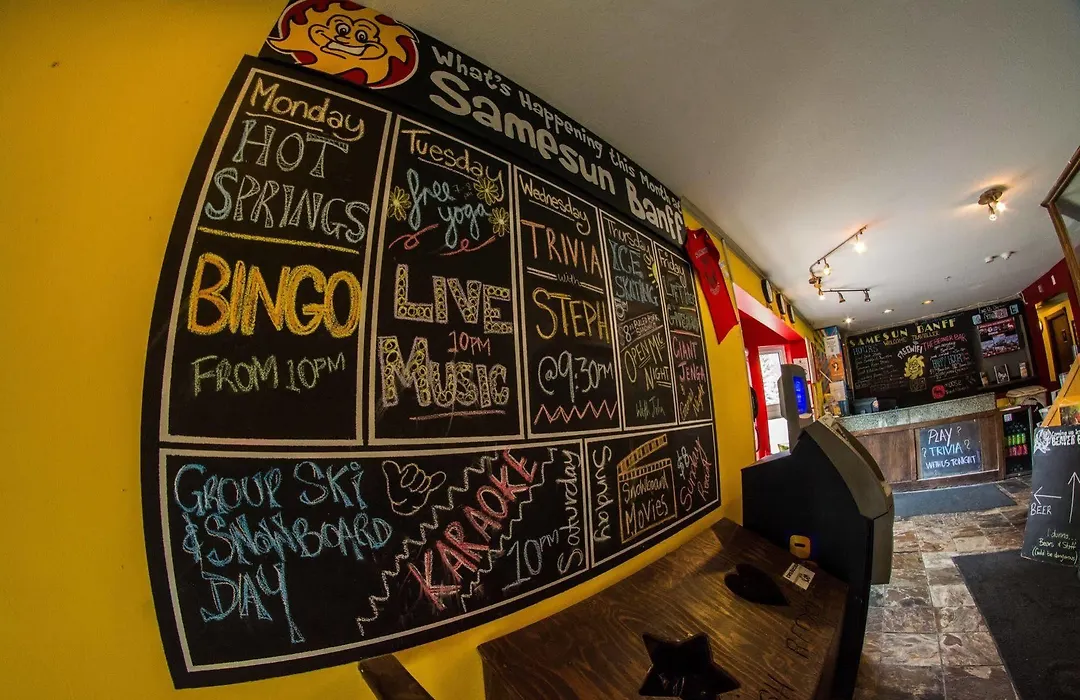 What's Happening this Month at
Samesun Banff
Monday
HOT
SPRINGS
BINGO
FROM 10PM
Tuesday
free
yoga
LIVE
10PM
MUSIC
Wednesday
TRIVIA
with
STEPH
@9:30PM
Thursday
ICE
SKATING
OPEN MIC
NIGHT
With John
Friday
GIANT
JENGA
GROUP SKI
& SNOWBOARD
DAY
KARAOKE
10pm
Saturday
Sunday
Snowboard
Movies
$8
Sunday
Roast
SAMESUN BANFF
THE BEAVER BAR
PLAY
? TRIVIA ?
WITH US TONIGHT
BEER
I dunno..
Bears & Stuff
(Could be dangerous)